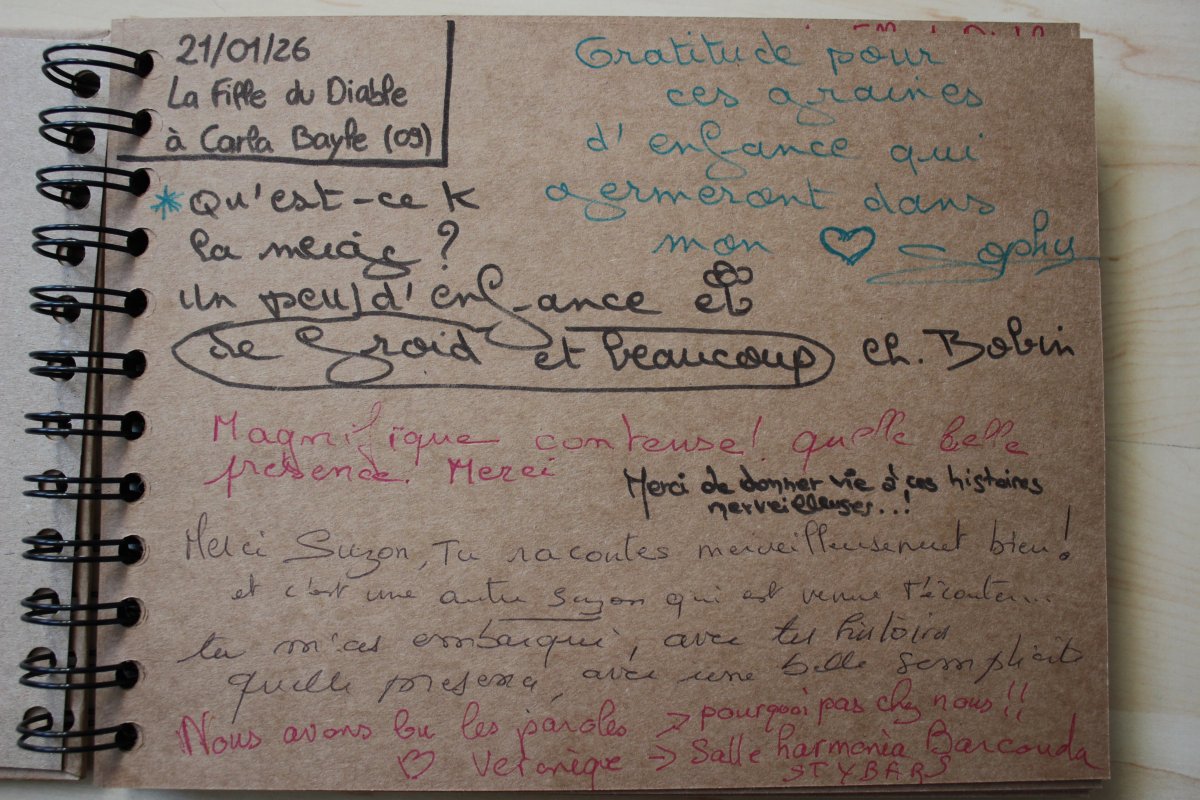 21/01/26
La Fille du Diable
à Carla Bayle (09)
Gratitude pour
ces graines
d'enfance qui
germeront dans
mon ♡ Sophy
*Qu'est-ce K
la neige ?
Un peu d'enfance et
de froid et beaucoup ch. Bobin
Magnifique conteuse! quelle belle
présence. Merci
Merci de donner vie à ces histoires
merveilleuses...!
Merci Suzon, Tu racontes merveilleusement bien!
et c'est une autre Suzon qui est venue t'écouter...
tu m'as embarqué, avec tes histoires
quelle présence, avec une belle simplicité
Nous avons bu les paroles → pourquoi pas chez nous!!
♡ Veronèque → Salle harmonia Barcouda
STYBARS